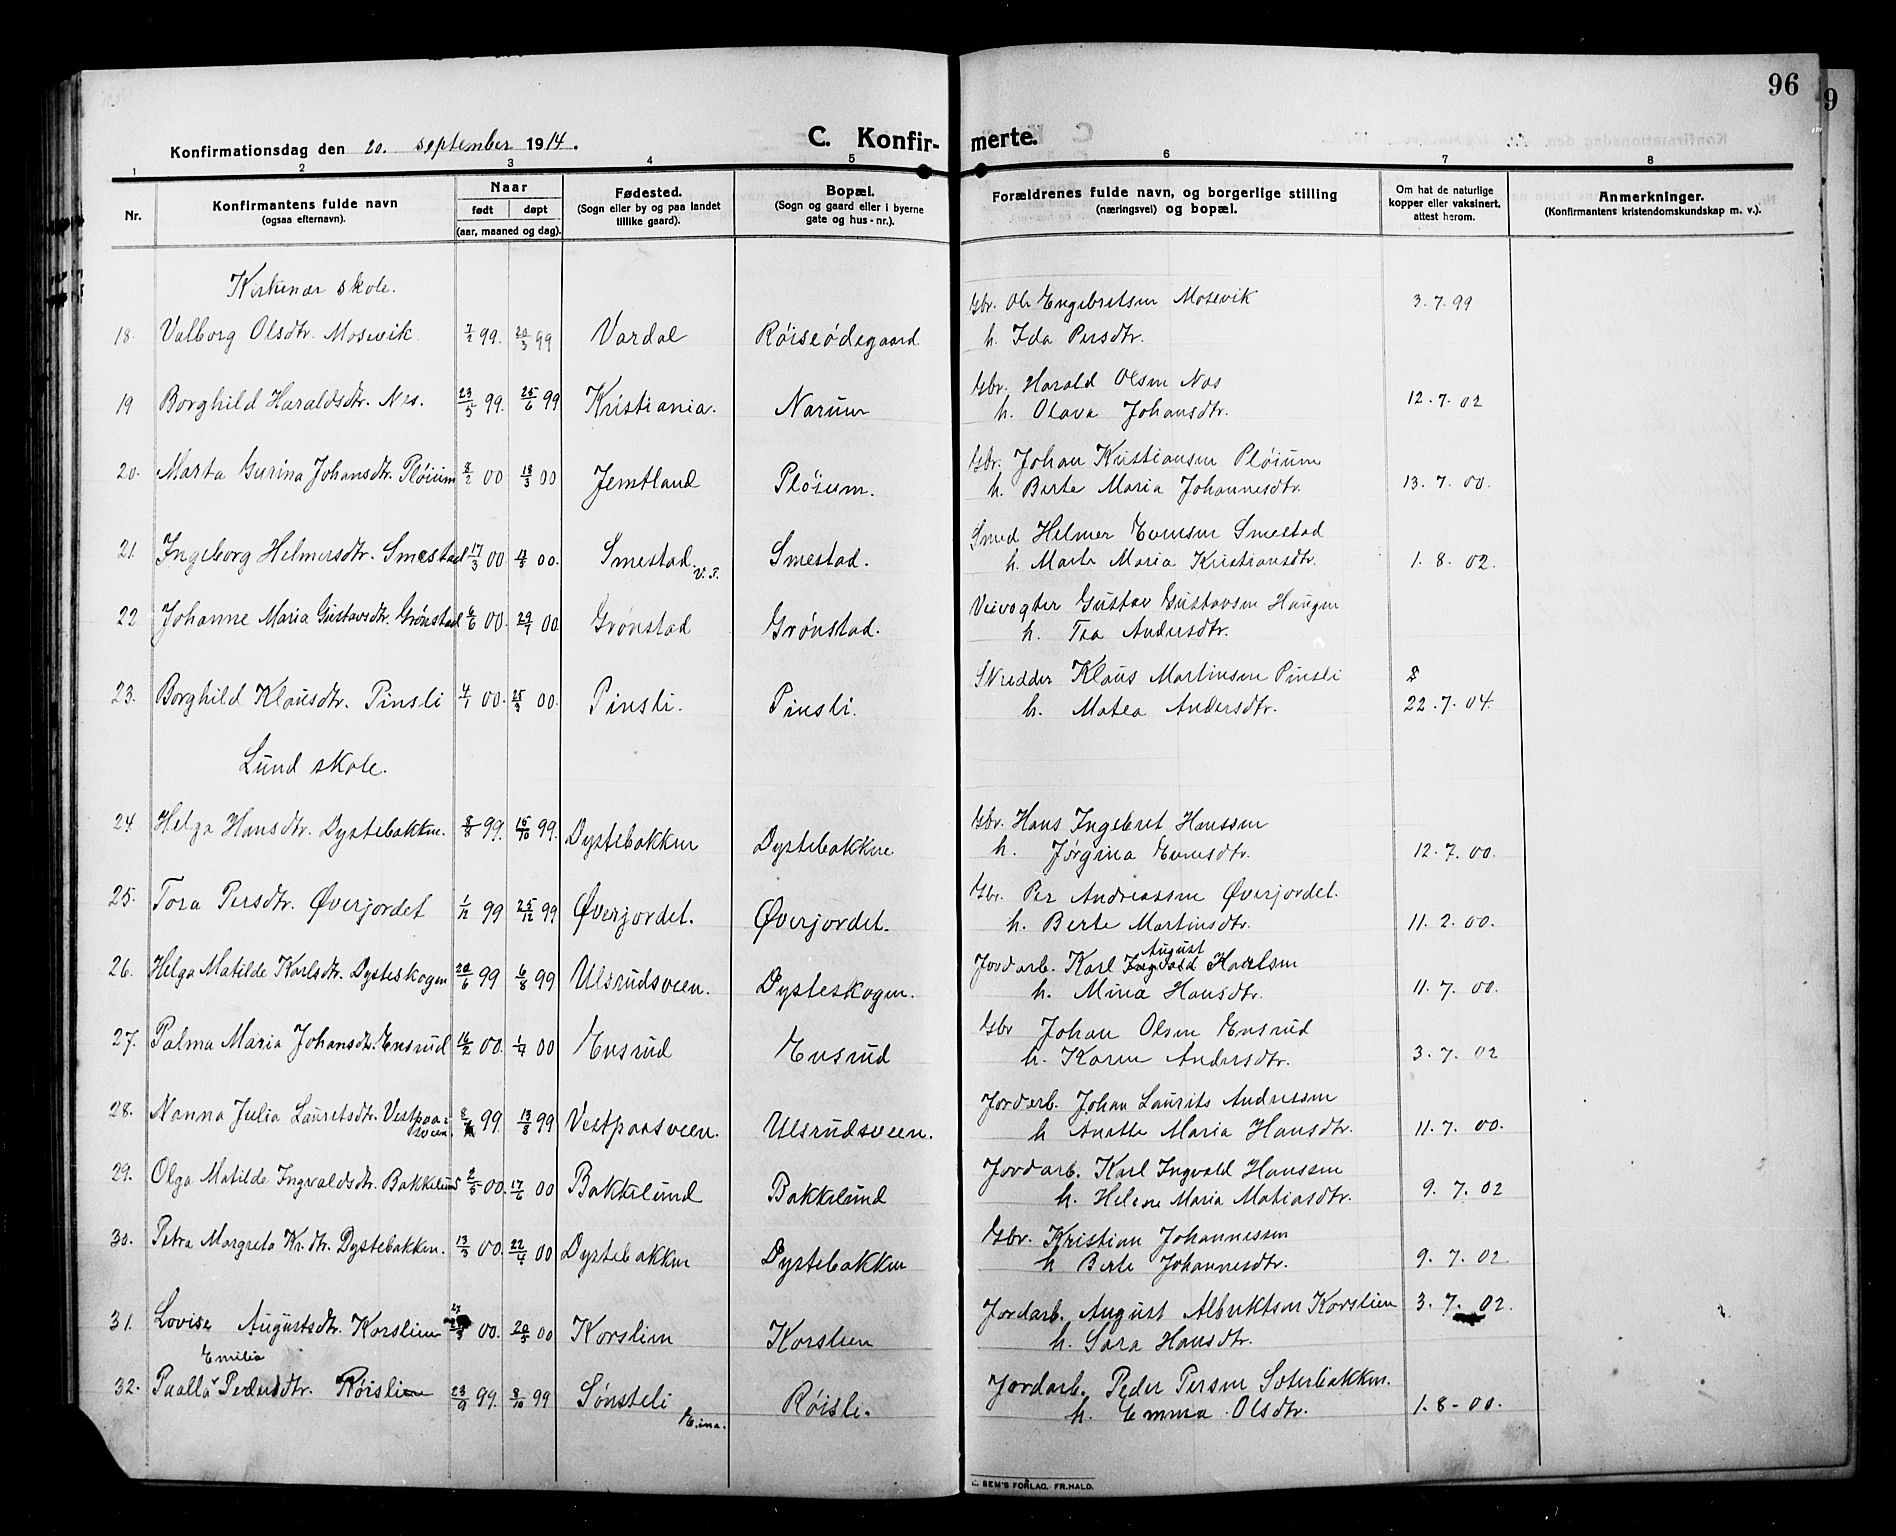 96
9
Konfirmationsdag den 20. september 1914.
C. Konfir- merte.
1 2 3 4 5 6 7 8
Nr.
Konfirmantens fulde navn
(ogsaa efternavn).
Naar
født døpt
(aar, maaned og dag).
Fødested.
(Sogn eller by og paa landet
tillike gaard).
Bopæl.
(Sogn og gaard eller i byerne
gate og hus-nr.).
Forældrenes fulde navn, og borgerlige stilling
(næringsvei) og bopæl.
Om hat de naturlige
kopper eller vaksinert,
attest herom.
Anmerkninger.
(Konfirmantens kristendomskundskap m. v.).
Kirkenær skole.
Gbr. Ole Engebretsen Mosevik 3.7.99
18. Valborg Olsdtr. Mosevik 7/2 99. 20/3 99 Vardal Røiseødegaard h. Ida Persdtr.
Gbr. Harald Olsen Næs
19 Borghild Haraldsdtr. Nes. 23/5 99. 25/6 99 Kristiania. Narum h. Olava Johansdtr. 12.7.02
Gbr. Johan Kristiansen Pløium
20. Marta Gurina Johansdtr. Pløium 8/2 00 18/3 00 Jemtland Pløium. h. Berte Maria Johannesdtr. 13.7.00.
Smed Helmer Evensen Smestad
21. Ingeborg Helmersdtr. Smestad 17/3 00 00. Smestad. V.T. Smestad. h. Marte Maria Kristiansdtr. 1.8.02.
Veivogter Gustav Gustavsen Haugen
22 Johanne Maria Gustavsdtr. Grønstad 6/6 00. 29/7 00 Grønstad Grønstad. h. Tea Andersdtr.
Skredder Klaus Martinsen Pinsli
23. Borghild Klausdtr. Pinsli 4/1 00. 25/3 00. Pinsli. Pinsli. h. Matea Andersdtr. 22.7.04.
Lund skole.
Gbr. Hans Ingebret Hanssen
24 Helga Hansdtr. Dystebakken. 8/8 99. 15/10 99. Dystebakken Dystebakken h. Jørgina Evensdtr. 12.7.00.
Gbr. Per Andreassen Øverjordet.
25. Tora Persdtr. Øverjordet 1/12 99 25/12 99 Øverjordet. Øverjordet. h. Berte Martinsdtr. 11.2.00.
August
Jordarb. Karl Ingvald Haalsen
26. Helga Matilde Karlsdtr. Dysteskogen 20/6 99 6/8 99 Ulsrudsveen. Dysteskogen. h. Mina Hansdtr. 11.7.00.
Gbr Johan Olsen Ensrud
27. Palma Maria Johansdtr. Ensrud 16/2 00. 1/4 00 Ensrud Ensrud h. Karen Andersdtr. 3.7.02
Jordarb. Johan Laurits Andersen
28. Nanna Julia Lauretsdtr. Vestpaa-
sveen. 99. 13/8 99 Vestpaasveen. Ulsrudsveen. h Anette Maria Hansdtr. 11.7.00.
Jordarb. Karl Ingvald Hanssen
29. Olga Matilde Ingvaldsdtr. Bakkelund 2/5 00. 17/6 00 Bakkelund Bakkelund h. Helene Maria Matiasdtr. 9.7.02
Gbr. Kristian Johannessen
30. Petra Margreta Kr.dtr. Dystebakken. 13/3 00. 22/4 00 Dystebakken Dystebakken h Berte Johannesdtr. 9.7.02.
Jordarb. August Albriktsen Korslien 3.7.02.
31. Lovise Augustsdtr. Korslien 00. 20/5 00 Korslien Korslien h. Sara Hansdtr.
Emilia
Jordarb. Peder Persen Sæterbakken.
32. Paulla Pedersdtr. Røislien 23/9 99. 8/10 99 Sønsteli Eina. Røisli. h. Emma Olsdtr. 1.8-00.
SEM'S FORLAG, FR.HALD.